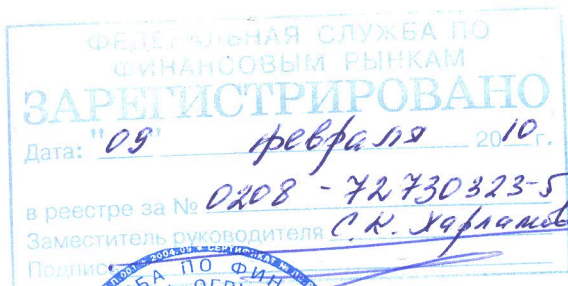 ФЕДЕРАЛЬНАЯ СЛУЖБА ПО
ФИНАНСОВЫМ РЫНКАМ
ЗАРЕГИСТРИРОВАНО
Дата: "09" февраля 2010 г.
в реестре за № 0208 - 72730323-5
Заместитель руководителя С.К. Харламов
Подпись
БА ПО ФИН